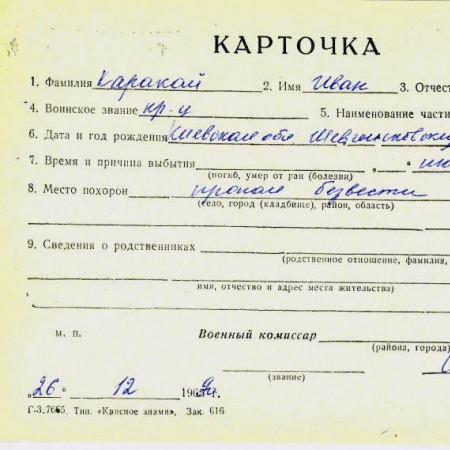 КАРТОЧКА
1. Фамилия Каракай 2. Имя Иван 3. Отчест
4. Воинское звание кр-ц 5. Наименование части
6. Дата и год рождения Киевская обл
7. Время и причина выбытия „ “ ию
(погиб, умер от ран (болезни)
8. Место похорон пропал безвести
(село, город (кладбище), район, область)
9. Сведения о родственниках
(родственное отношение, фамилия,
имя, отчество и адрес места жительства)
м. п. Военный комиссар
(района, города)
(звание)
„26“ 12 196 г.
Г-3.7665, Тип. «Красное знамя», Зак. 616